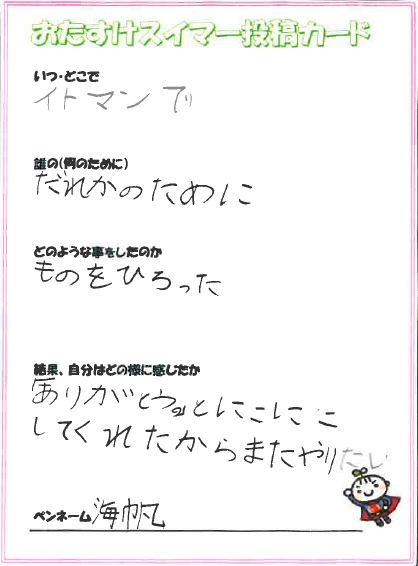 おたすけスイマー投稿カード
いつ・どこで
イトマンで
誰の(何のために)
だれかのために
どのような事をしたのか
ものをひろった
結果、自分はどの様に感じたか
『ありがとう』とにこにこ
してくれたからまたやりたい
ペンネーム 海帆